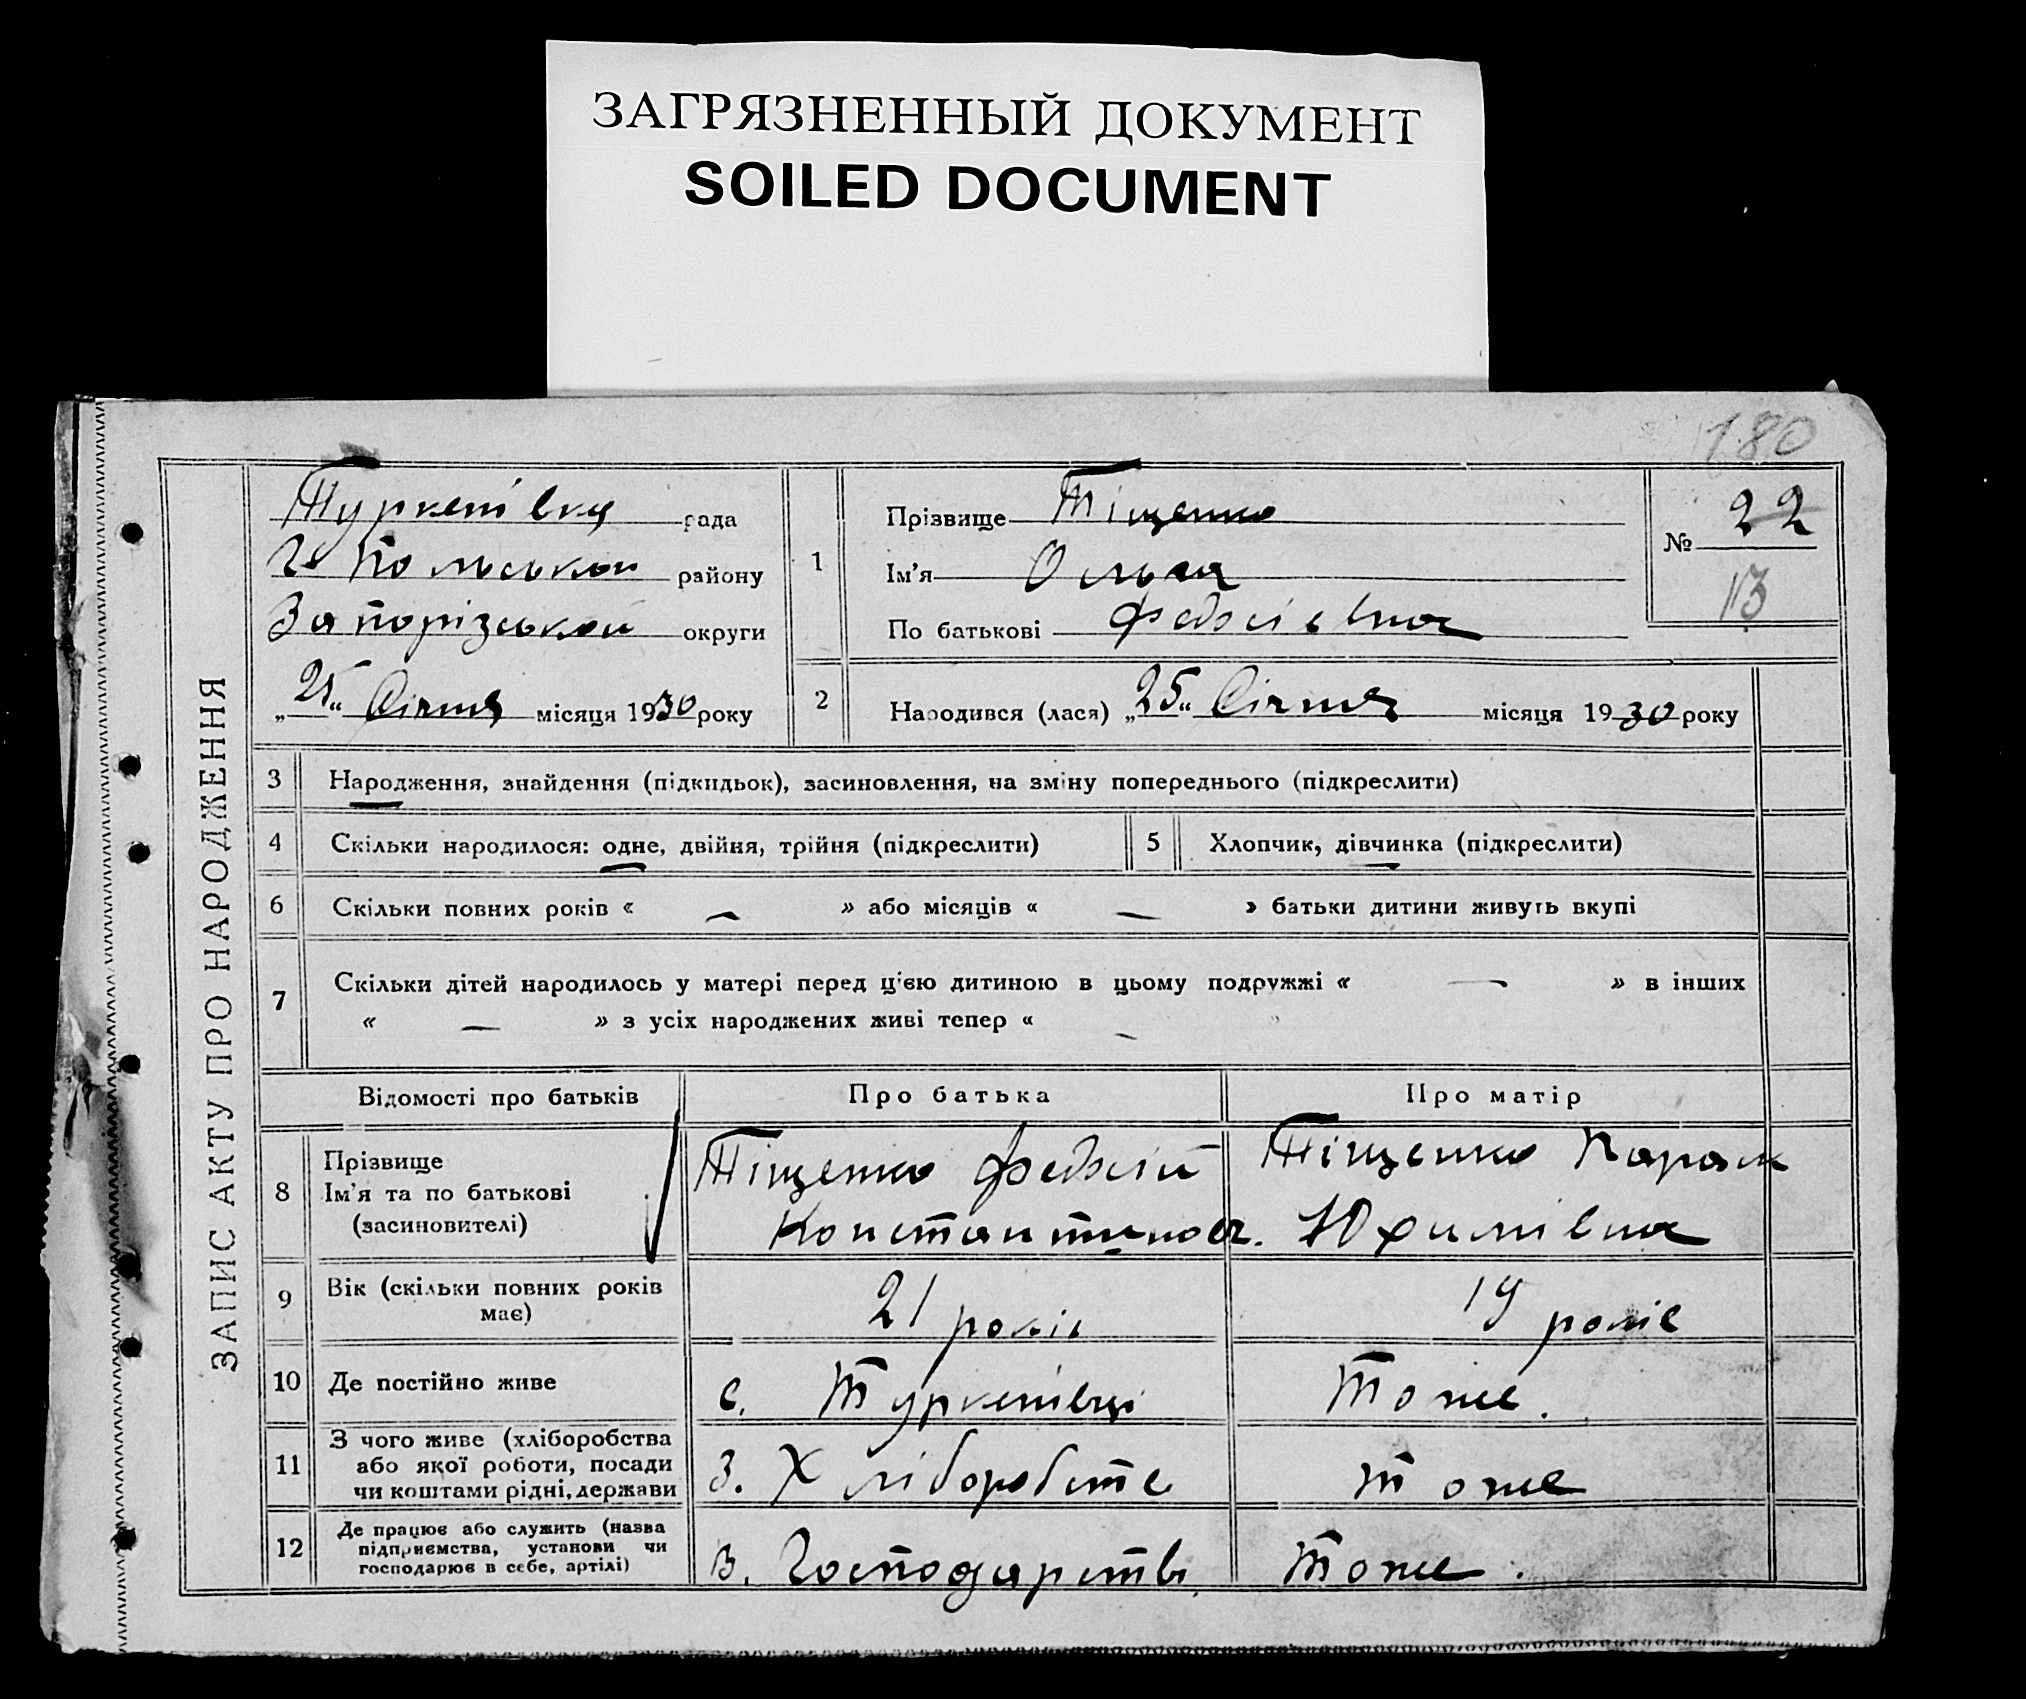 ЗАГРЯЗНЕННЫЙ ДОКУМЕНТ
SOILED DOCUMENT
180
ЗАПИС АКТУ ПРО НАРОДЖЕННЯ
Туркенівка рада
Г-Польської району
Запорізької округи
„25“ Січня місяця 1930 року
1
Прізвище Тіщенко
Ім'я Ольга
По батькові
№ 22
13
2 Народився (лася) „25“ Січня місяця 1930 року
3 Народження, знайдення (підкидьок), засиновлення, на зміну попереднього (підкреслити)
4 Скільки народилося: одне, двійня, трійня (підкреслити) 5 Хлопчик, дівчинка (підкреслити)
6 Скільки повних років « — » або місяців « — » батьки дитини живуть вкупі
7 Скільки дітей народилось у матері перед цією дитиною в цьому подружжі « — » в інших
« — » з усіх народжених живі тепер « — »
Відомості про батьків Про батька Про матір
8 Прізвище
Ім'я та по батькові
(засновителі)
Тіщенко
Константинов.
Тіщенко Параск
Юхимівна
9 Вік (скільки повних років
має)
21 років 19 років
10 Де постійно живе с. Туркенівці Тоже.
11 З чого живе (хліборобства
або якої роботи, посади
чи коштами рідні, держави
З. Хліборобств тоже
12 Де працює або служить (назва
підприємства, установи чи
господарює в себе, артілі)
В. Господарстві Тоже.